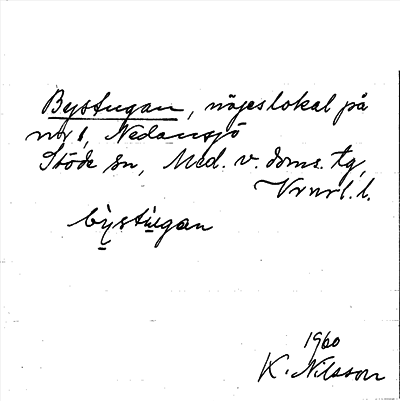 Bystugan, nöjeslokal på
nr 1, Nedansjö
Stöde sn, Med. v. doms. tg,
Vrnrl. l.
bystugan
1960
K. Nilsson